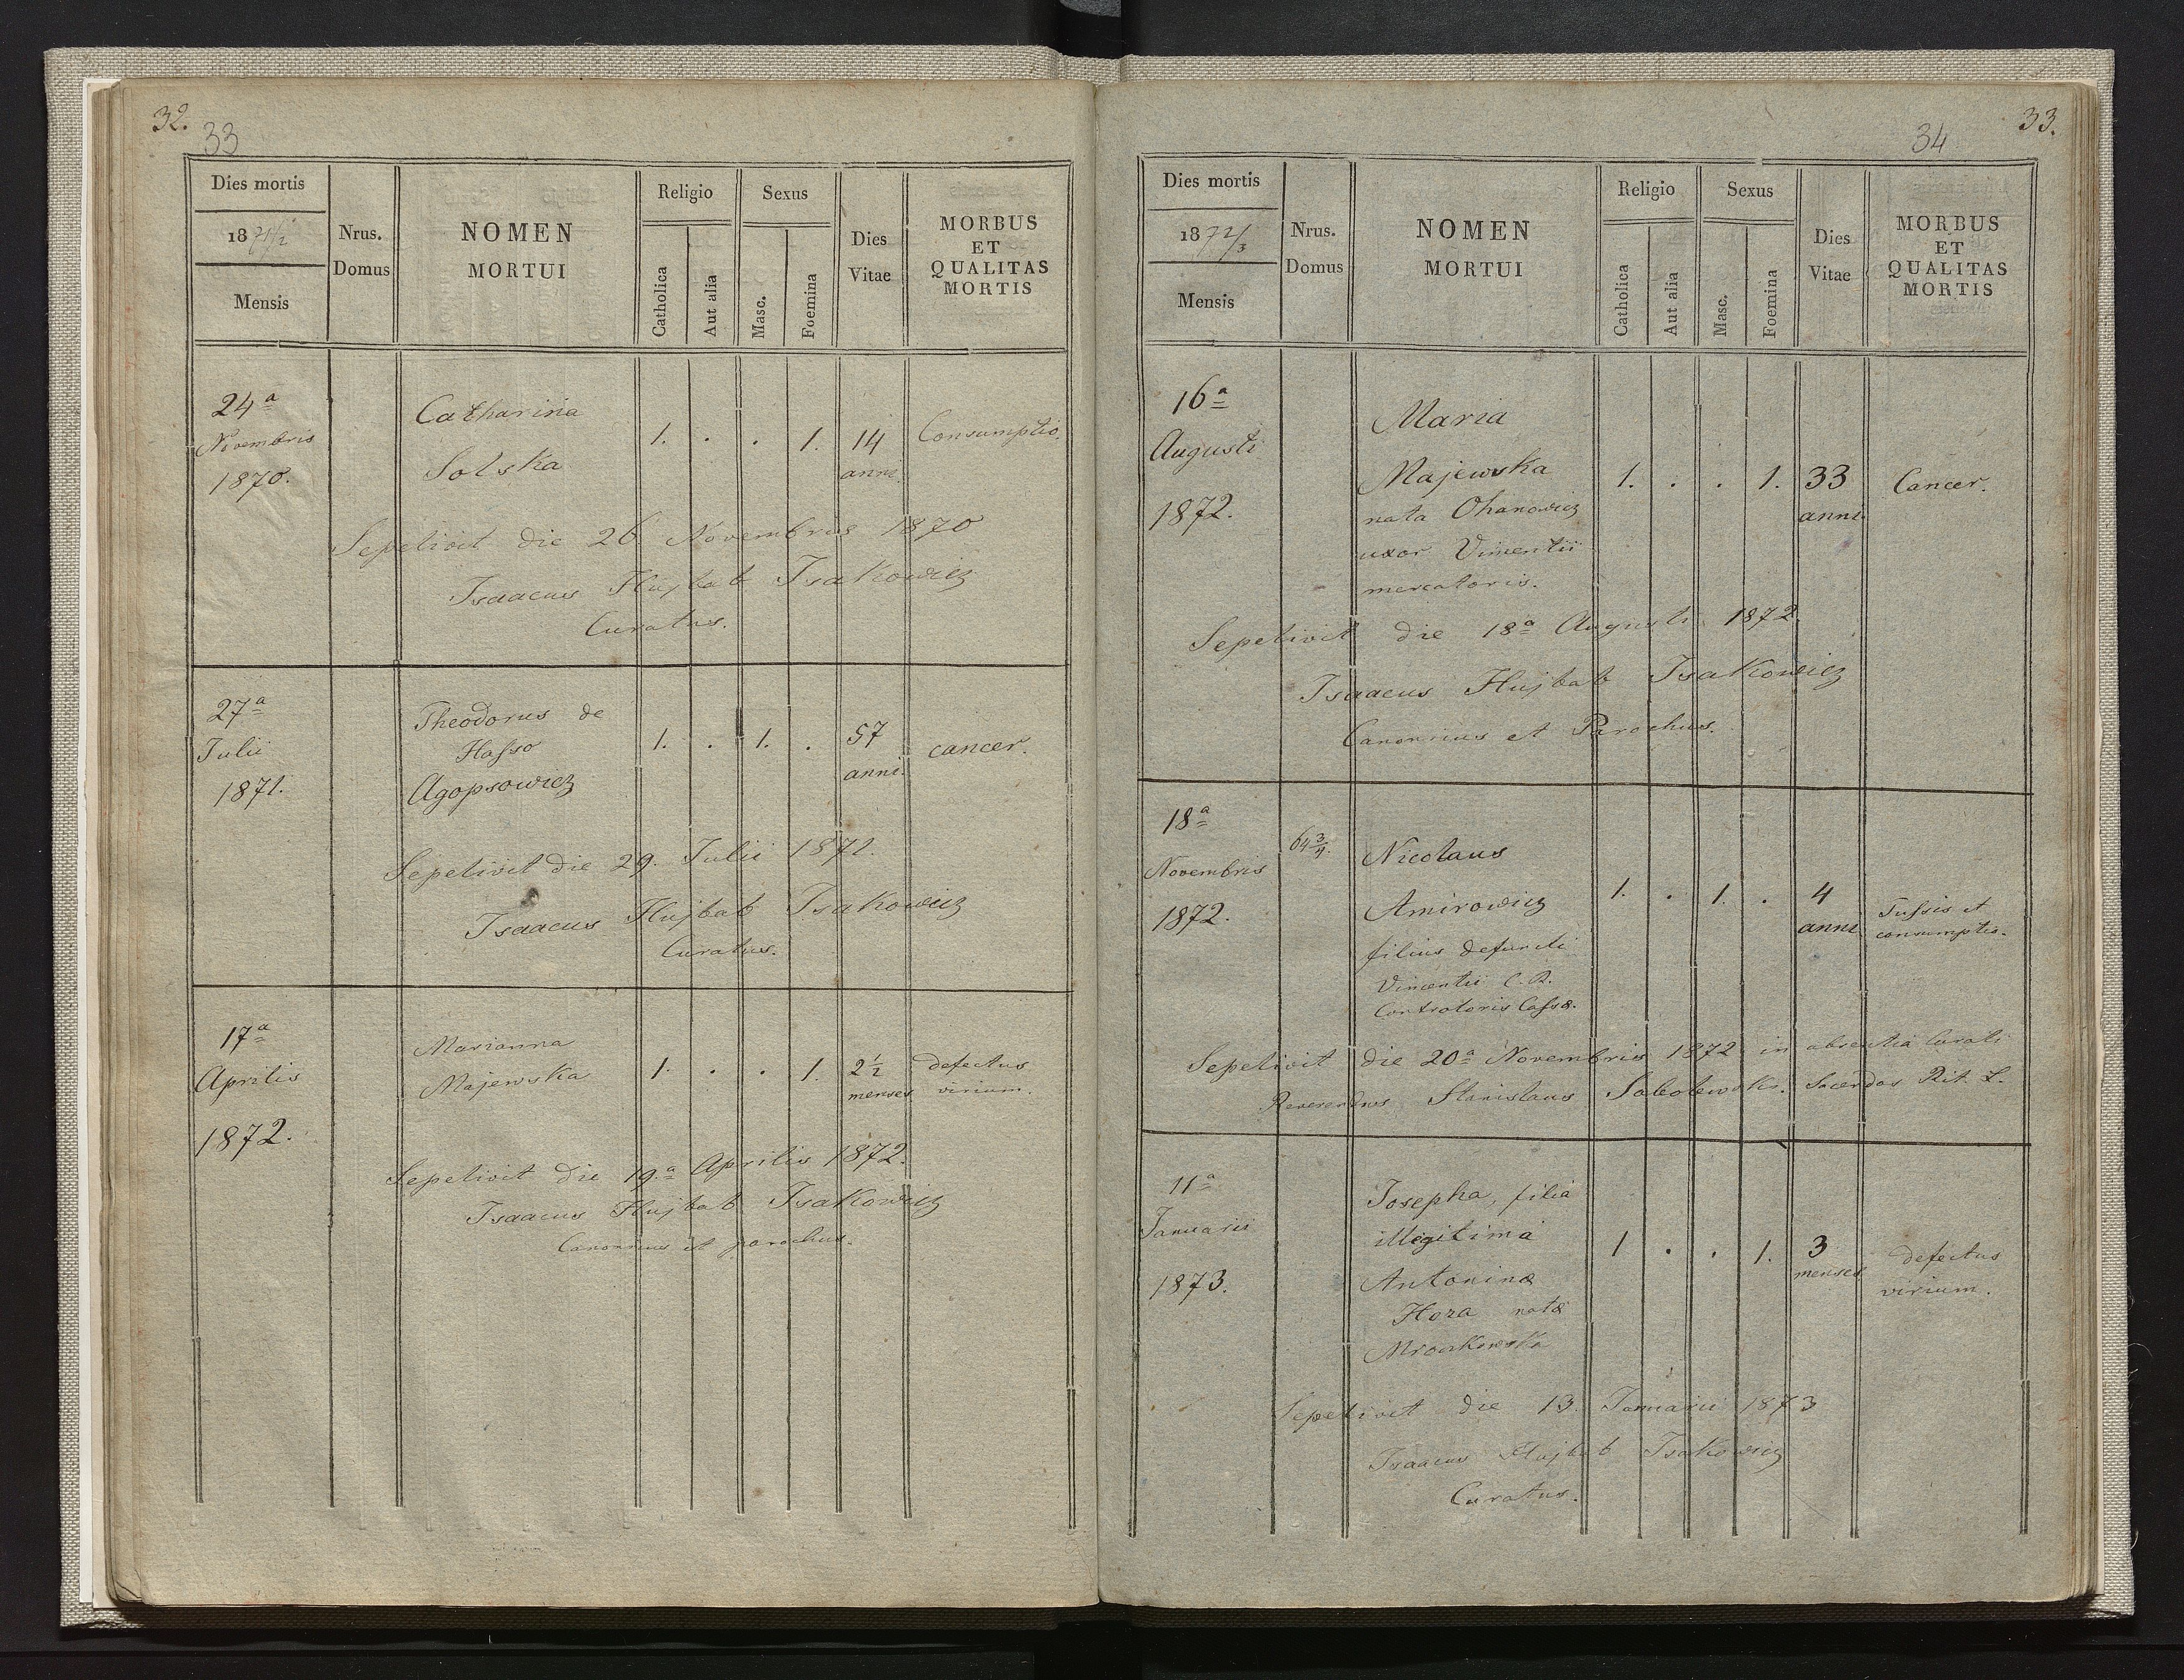 32.
33
Dies mortis
1871/2
Mensis
Nrus.
Domus
NOMEN
MORTUI
Religio
Catholica
Aut alia
Sexus
Masc.
Foemina
Dies
Vitae
MORBUS
ET
QUALITAS
MORTIS
24a
Novembris
1870.
Catharina
Solska
1. . . 1.
14
anni.
Consumptio.
Sepelivit die 26 Novembris 1870
Isaacus Hujbab Isakowicz
Curatus.
27a
Julii
1871.
Theodorus de
Hasso
Agopsowicz
1. . 1. .
57
anni.
cancer.
Sepelivit die 29. Julii 1871.
Isaacus Hujbab Isakowicz
Curatus.
17a
Aprilis
1872.
Marianna
Majewska
1. . . 1.
2 1/2
menses
defectus
virium.
Sepelivit die 19.a Aprilis 1872.
Isaacus Hujbab Isakowicz
Canonicus et parochus.
33.
34
Dies mortis
1872/3
Mensis
Nrus.
Domus
NOMEN
MORTUI
Religio
Catholica
Aut alia
Sexus
Masc.
Foemina
Dies
Vitae
MORBUS
ET
QUALITAS
MORTIS
16a
Augusti
1872.
Maria
Majewska
nata Ohanowicz
uxor Vincentii
mercatoris.
1. . . 1.
33
anni.
Cancer.
Sepelivit die 18a Augusti 1872.
Isaacus Hujbab Isakowicz
Canonicus et Parochus.
18a
Novembris
1872.
64 3/4.
Nicolaus
Amirowicz
filius defuncti
Vincentii C. R.
Controloris Cassæ.
1. . 1. .
4
anni
Tussis et
consumptio.
Sepelivit die 20a Novembris 1872 in absentia Curati
Reverendus Stanislaus Sobolewski. Sacerdos Rit. L.
11a
Januarii
1873.
Josepha, filia
illegitima
Antoninæ
Hora natæ
1 . . 1.
3
menses
defectus
virium.
Sepelivit die 13. Januarii 1873
Isaacus Hujbab Isakowicz
Curatus.